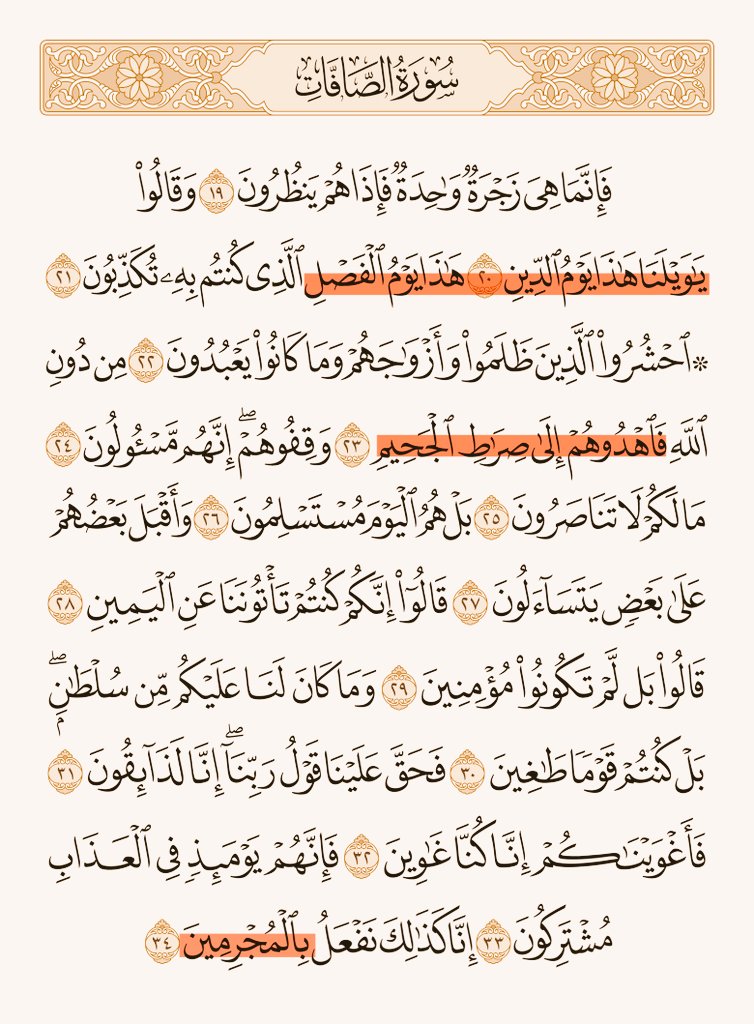 سُورَةُ الصَّافَّاتِ
فَإِنَّمَا هِيَ زَجْرَةٌ وَٰحِدَةٌ فَإِذَا هُمْ يَنظُرُونَ ١٩ وَقَالُوا۟
يَـٰوَيْلَنَا هَـٰذَا يَوْمُ ٱلدِّينِ ٢٠ هَـٰذَا يَوْمُ ٱلْفَصْلِ ٱلَّذِى كُنتُم بِهِۦ تُكَذِّبُونَ ٢١
۞ ٱحْشُرُوا۟ ٱلَّذِينَ ظَلَمُوا۟ وَأَزْوَٰجَهُمْ وَمَا كَانُوا۟ يَعْبُدُونَ ٢٢ مِن دُونِ
ٱللَّهِ فَٱهْدُوهُمْ إِلَىٰ صِرَٰطِ ٱلْجَحِيمِ ٢٣ وَقِفُوهُمْ ۖ إِنَّهُم مَّسْـُٔولُونَ ٢٤
مَا لَكُمْ لَا تَنَاصَرُونَ ٢٥ بَلْ هُمُ ٱلْيَوْمَ مُسْتَسْلِمُونَ ٢٦ وَأَقْبَلَ بَعْضُهُمْ
عَلَىٰ بَعْضٍ يَتَسَآءَلُونَ ٢٧ قَالُوٓا۟ إِنَّكُمْ كُنتُمْ تَأْتُونَنَا عَنِ ٱلْيَمِينِ ٢٨
قَالُوا۟ بَل لَّمْ تَكُونُوا۟ مُؤْمِنِينَ ٢٩ وَمَا كَانَ لَنَا عَلَيْكُم مِّن سُلْطَـٰنٍۭ ۖ
بَلْ كُنتُمْ قَوْمًا طَـٰغِينَ ٣٠ فَحَقَّ عَلَيْنَا قَوْلُ رَبِّنَآ ۖ إِنَّا لَذَآئِقُونَ ٣١
فَأَغْوَيْنَـٰكُمْ إِنَّا كُنَّا غَـٰوِينَ ٣٢ فَإِنَّهُمْ يَوْمَئِذٍ فِى ٱلْعَذَابِ
مُشْتَرِكُونَ ٣٣ إِنَّا كَذَٰلِكَ نَفْعَلُ بِٱلْمُجْرِمِينَ ٣٤